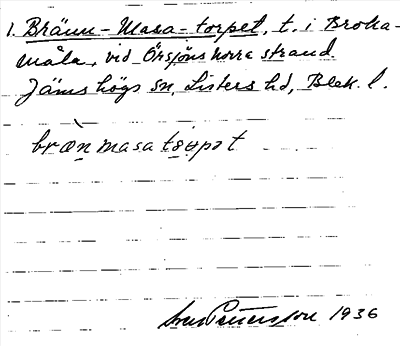 1. Bränn-Masa-torpet, t. i Broka-
måla, vid Örsjöns norra strand
Jämshögs sn, Listers hd, Blek. l.
bræ̀nmasatɔrpət
Pettersson 1936